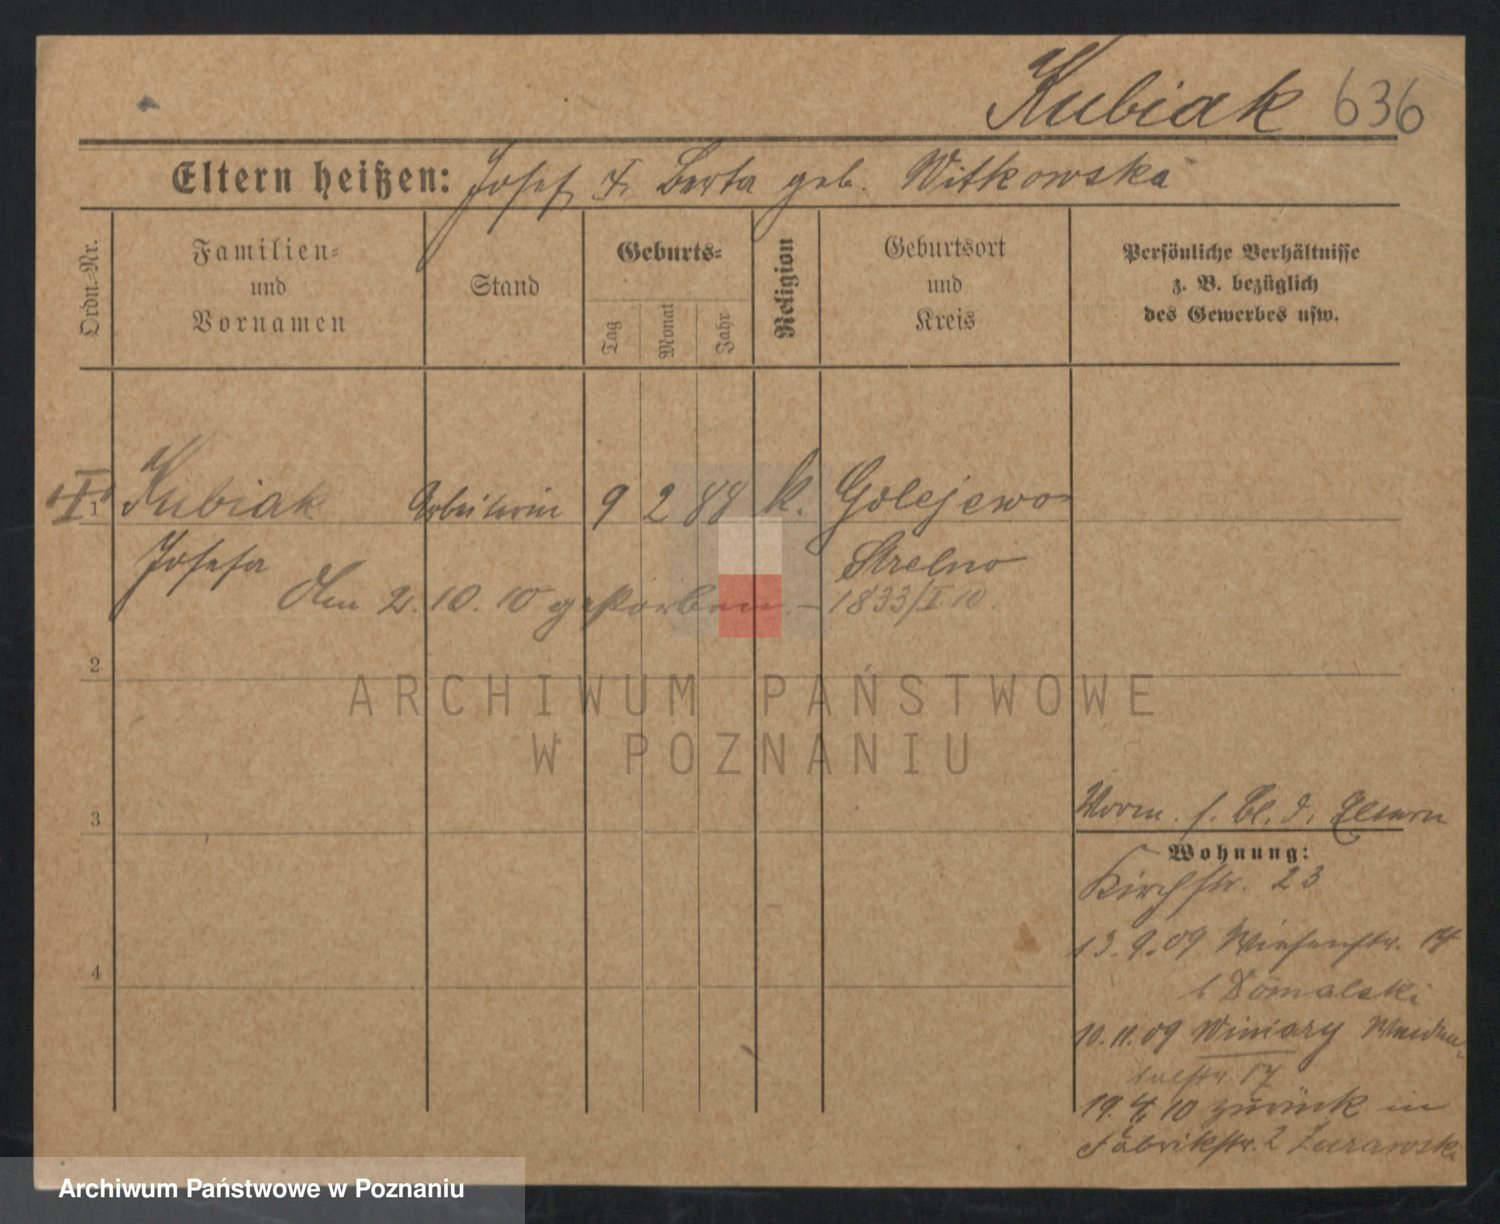 Kubiak 636
Eltern heißen: Josef u. Berta geb. Witkowska
Ordn.-Nr.
Familien-
und
Vornamen
Stand
Geburts-
Tag
Monat
Jahr
Religion
Geburtsort
und
Kreis
Persönliche Verhältnisse
z. B. bezüglich
des Gewerbes usw.
1 Kubiak Arbeiterin 9 2 88 k. Golejewo
Josefa Strelno
Am 2. 10. 10 gestorben – 1833/I 10.
2
ARCHIWUM PAŃSTWOWE
W POZNANIU
3
Vorm. s. Bl. d. Eltern
Wohnung:
Kirchstr. 23
4
13.9.09 Wiesenstr. 14
b Domalski
10.11.09 Winiary
17
19. 4. 10 zurück in
Fabrikstr. 2 Zurawski
Archiwum Państwowe w Poznaniu